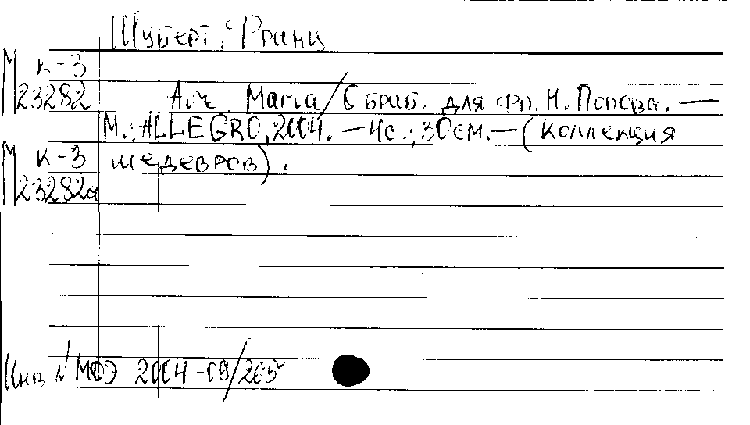 Шуберт, Франц
М к-3
23282
Ave Maria/Сблиб. для фп. Н. Попова. —
М.: ALLEGRO, 2004. — 4с.; 30см. — (Коллекция
М к-3 шедевров).
23282а
Инв № МФЭ 2004-09/205